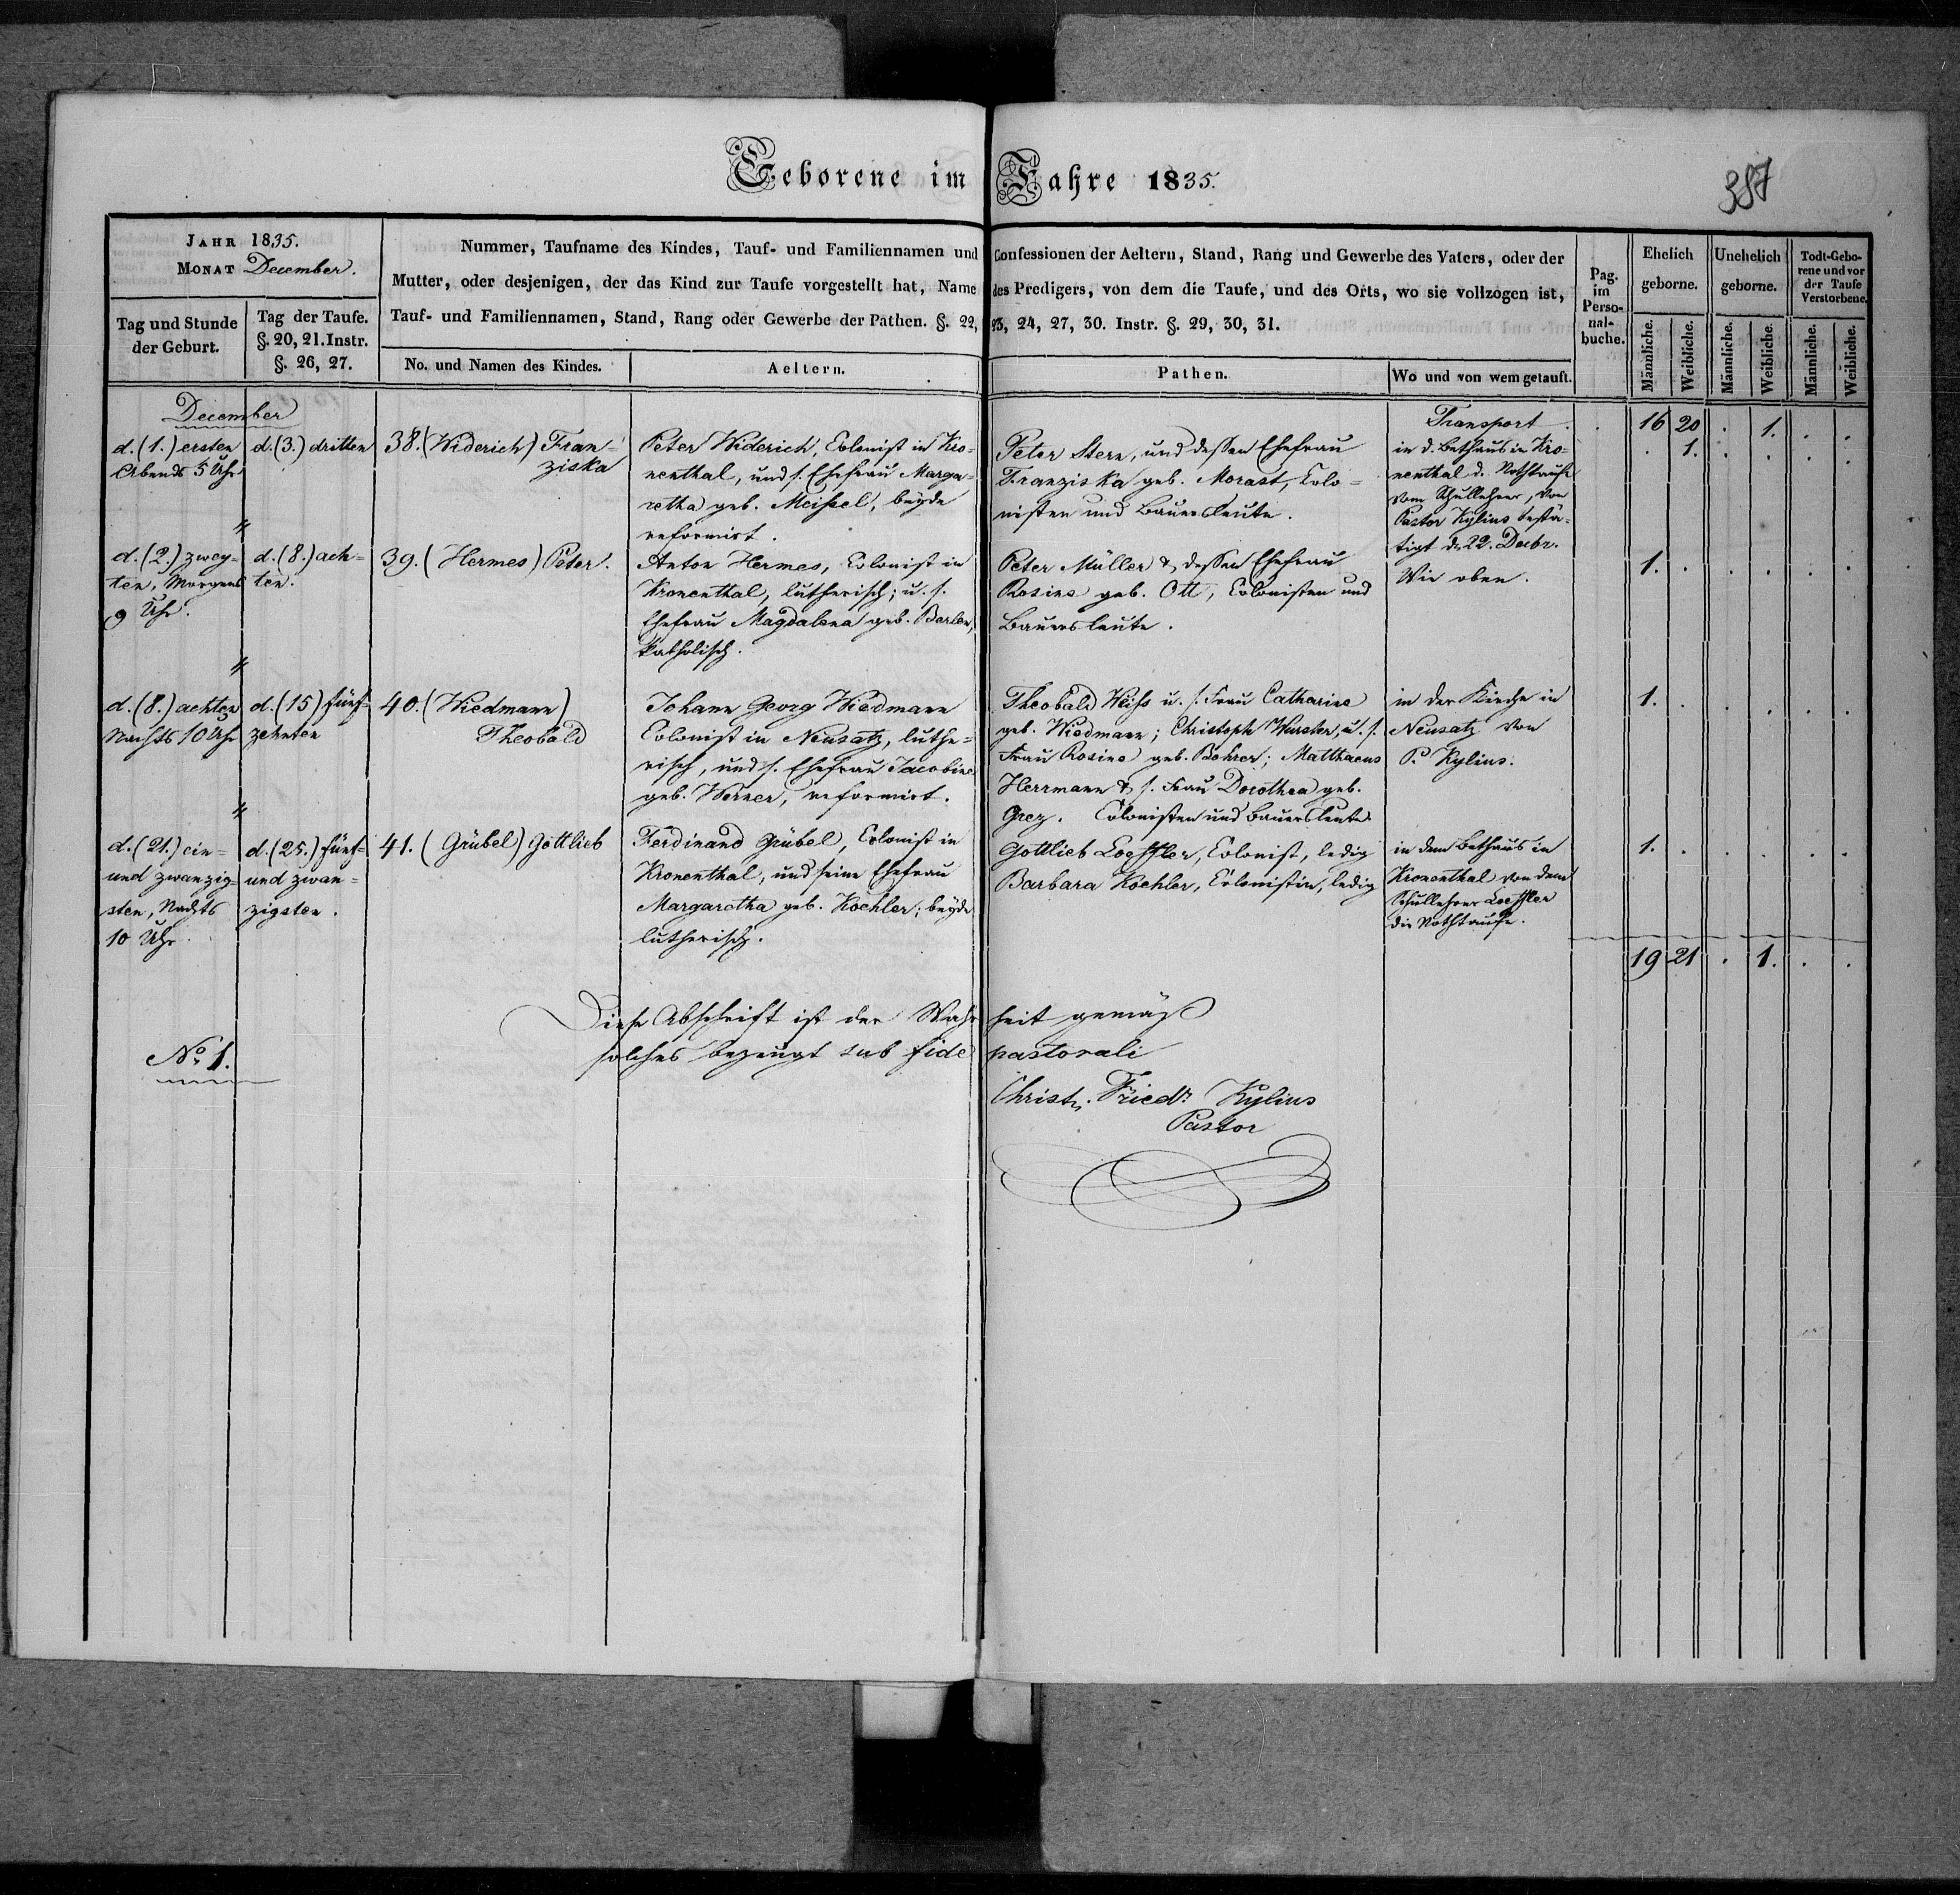 Geborene im Jahre 1835.
387
JAHR 1835.
MONAT December.
Tag und Stunde
der Geburt.
Tag der Taufe.
§. 20, 21. Instr.
§. 26, 27.
Nummer, Taufname des Kindes, Tauf- und Familiennamen und Confessionen der Aeltern, Stand, Rang und Gewerbe des Vaters, oder der
Mutter, oder desjenigen, der das Kind zur Taufe vorgestellt hat, Name des Predigers, von dem die Taufe, und des Orts, wo sie vollzogen ist,
Tauf- und Familiennamen, Stand, Rang oder Gewerbe der Pathen. §. 22, 23, 24, 27, 30. Instr. §. 29, 30, 31.
No. und Namen des Kindes.
Aeltern.
Pathen.
Wo und von wem getauft.
Pag.
im
Perso-
nal-
buche.
Ehelich
geborne.
Unehelich
geborne.
Todt-Gebo-
rene und vor
der Taufe
Verstorbene.
Männliche.
Weibliche.
Männliche.
Weibliche.
Männliche.
Weibliche.
December
Transport . . 16 20 . 1. . .
d. (1.) ersten
Abends 5 Uhr
d. (3.) dritten
38. (Widerich) Fran-
ziska
Peter Widerich, Colonist in Kro-
nenthal, und s. Ehefrau Marga-
retha geb. Meißel, beyde
reformirt.
Peter Stern, und dessen Ehefrau
Franziska geb. Morast, Colo-
nisten und Bauersleute.
in d. Bethaus in Kro-
nenthal d. Nothtaufe
vom Schullehrer, von
Pastor Kylius bestä-
tigt d. 22. Decbr.
. 1. . . . .
d. (2.) zwey-
ten, Morgens
9 Uhr.
d. (8.) ach-
ten.
39. (Hermes) Peter.
Anton Hermes, Colonist in
Kronenthal, lutherisch; u. s.
Ehefrau Magdalena geb. Barlen,
katholisch.
Peter Müller & dessen Ehefrau
Rosina geb. Ott, Colonisten und
Bauersleute.
Wie oben.
1. . . . . .
d. (8.) achten
Nachts 10 Uhr
d. (15) fünf-
zehnten
40. (Wiedmann)
Theobald
Johann Georg Wiedmann
Colonist in Neusatz, luthe-
risch, und s. Ehefrau Jacobine
geb. Werner, reformirt.
Theobald Weiss u. s. Frau Catharina
geb. Wiedmann; Christoph Wurster, u. s.
Frau Rosina geb. Bohrer; Matthaeus
Herrmann & s. Frau Dorothea geb.
Grez. Colonisten und Bauersleute
in der Kirche in
Neusatz von
P. Kylius.
1. . . . . .
d. (21.) ein-
und zwanzig-
sten, Nachts
10 Uhr.
d. (25.) fünf-
und zwan-
zigsten.
41. (Grübel) Gottlieb
Ferdinand Grübel, Colonist in
Kronenthal, und seine Ehefrau
Margaretha geb. Koehler; beyde
lutherisch.
Gottlieb Loeffler, Colonist, ledig
Barbara Koehler, Colonistin, ledig
in dem Bethaus in
Kronenthal von dem
Schullehrer Loeffler
die Nothtaufe.
1. . . . . .
19 21 . 1. . .
Diese Abschrift ist der Wahrheit gemäß
solches bezeugt sub fide pastorali
No 1.
Christ. Friedr. Kylius
Pastor